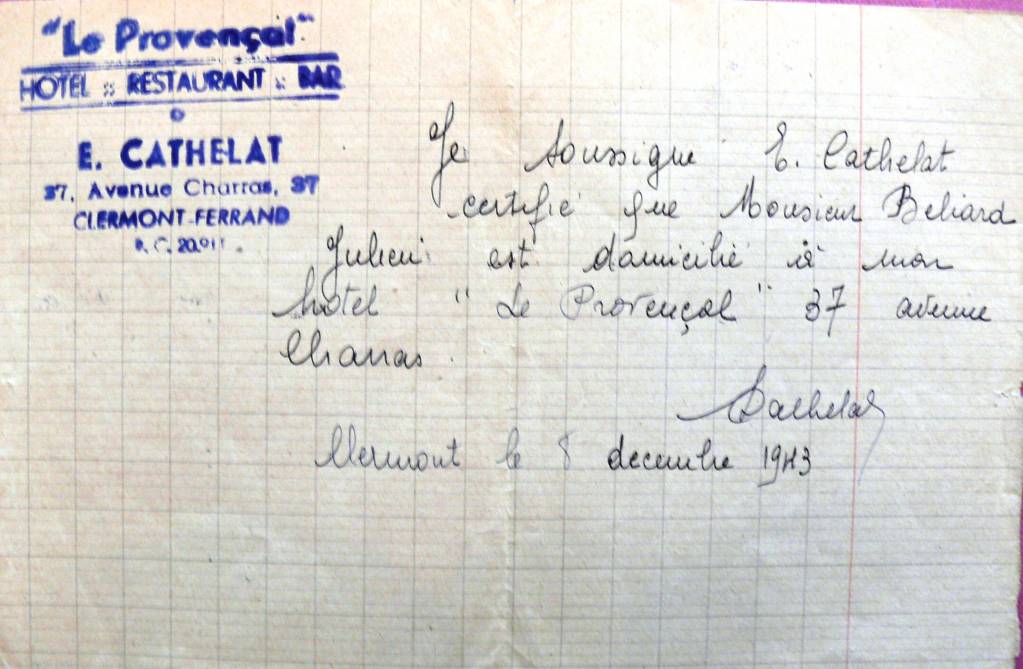 "Le Provençal"
HOTEL :: RESTAURANT :: BAR
E. CATHELAT
37, Avenue Charras, 37
CLERMONT-FERRAND
R. C. 20.911
Je soussigne E. Cathelat
certifie que Monsieur Beliard
Julien est domicilié à mon
hotel "Le Provençal" 37 avenue
Charras.
Cathelat
Clermont le 8 decembre 1943